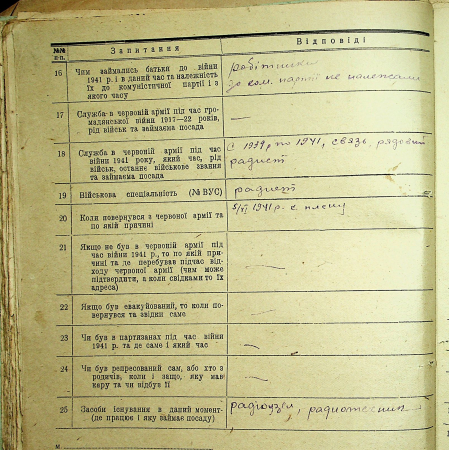 №№ п-п. Запитання Відповіді
16 Чим займались батьки до війни
1941 р. і в даний час та належність
їх до комуністичної партії і з
якого часу
робітники
до ком. партії не належали
17 Служба в червоній армії під час гро-
мадянської війни 1917—22 років,
рід військ та займаєма посада
—
18 Служба в червоній армії під час
війни 1941 року, який час, рід
військ, останнє військове звання
та займаєма посада
с 1939 р по 1941, связь, рядовой
радист
19 Військова спеціальність (№ ВУС)
радист
20 Коли повернувся з червоної армії та
по якій причині
5/VI 1941 р. с плену
21 Якщо не був в червоній армії під
час війни 1941 р., то по якій при-
чині та де перебував підчас від-
ходу червоної армії (чим може
підтвердити, а коли свідками то їх
адреса)
—
22 Якщо був евакуйований, то коли по-
вернувся та звідки саме
—
23 Чи був в партизанах під час війни
1941 р. та де саме і який час
—
24 Чи був репресований сам, або хто з
родичів, коли і защо, яку мав
кару та чи відбув її
—
25 Засоби існуваннв в даний момент-
(де працює і яку займає посаду)
радіоузел, радиотехник